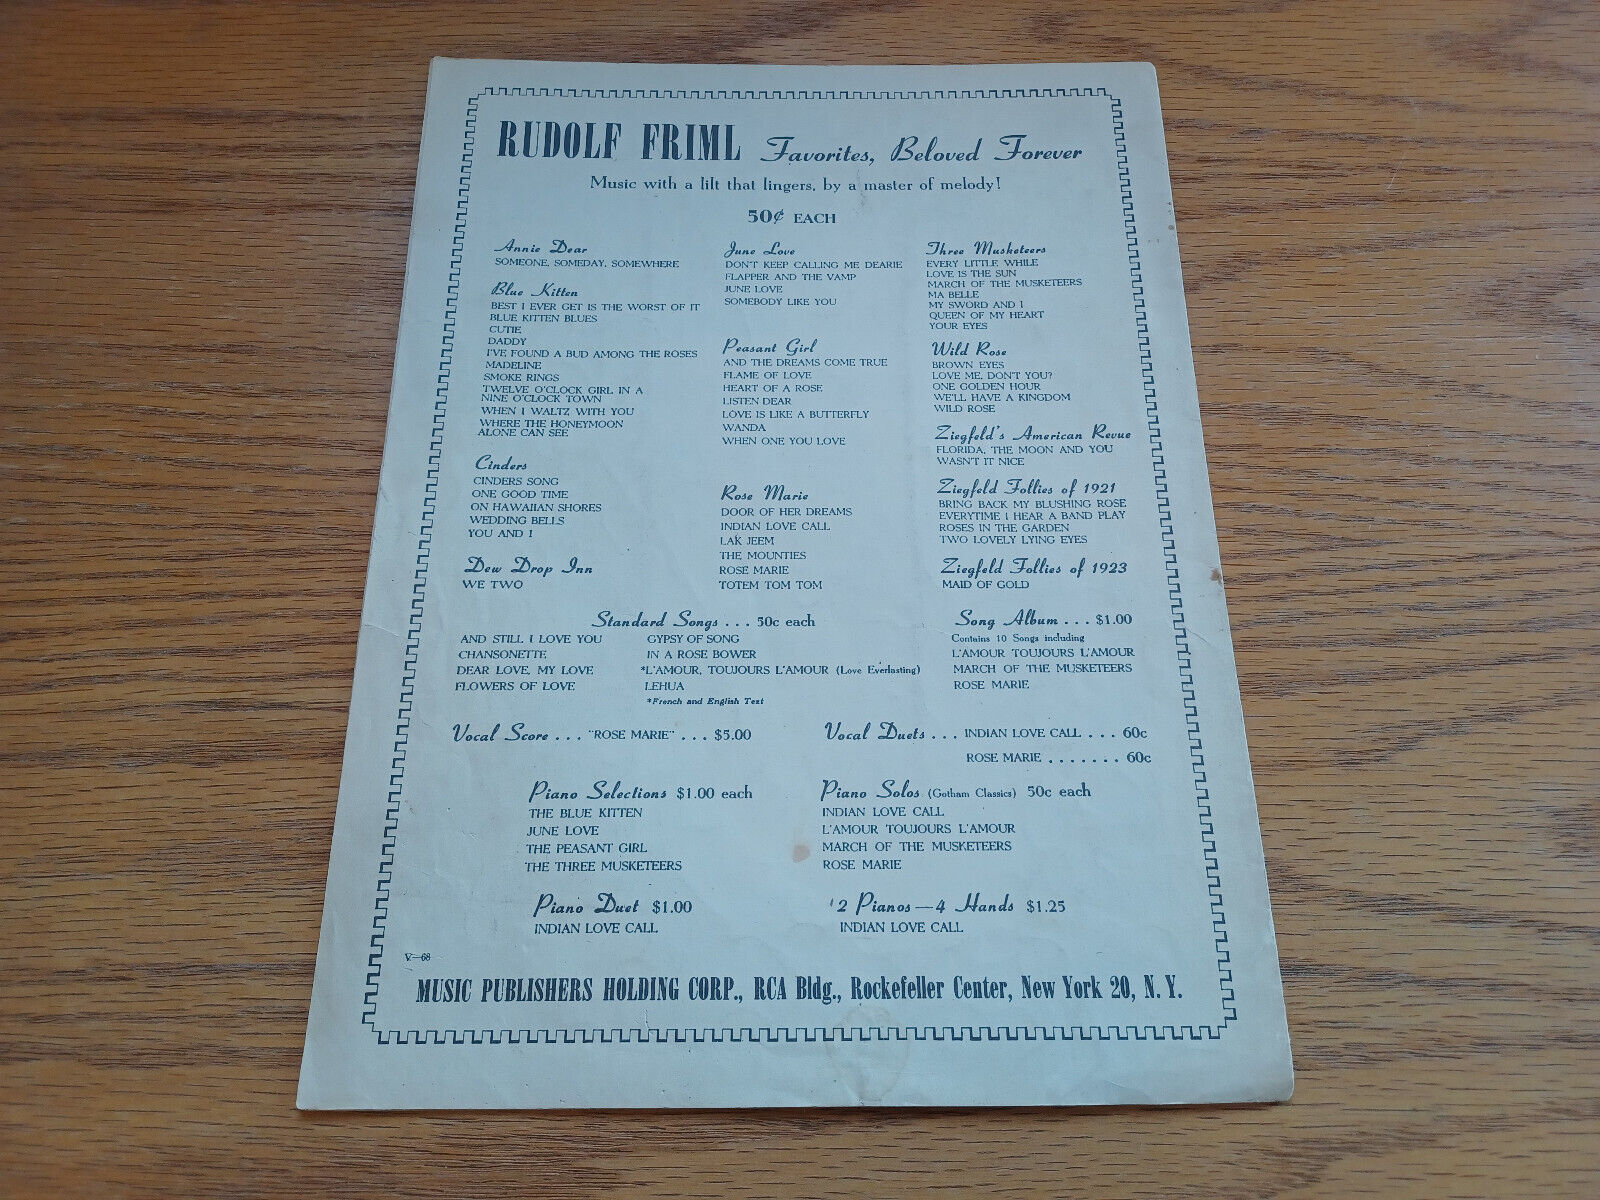 RUDOLF FRIML Favorites, Beloved Forever
Music with a lilt that lingers, by a master of melody!
50¢ EACH
Annie Dear
SOMEONE, SOMEDAY, SOMEWHERE
Blue Kitten
BEST I EVER GET IS THE WORST OF IT
BLUE KITTEN BLUES
CUTIE
DADDY
I'VE FOUND A BUD AMONG THE ROSES
MADELINE
SMOKE RINGS
TWELVE O'CLOCK GIRL IN A
NINE O'CLOCK TOWN
WHEN I WALTZ WITH YOU
WHERE THE HONEYMOON
ALONE CAN SEE
Cinders
CINDERS SONG
ONE GOOD TIME
ON HAWAIIAN SHORES
WEDDING BELLS
YOU AND I
Dew Drop Inn
WE TWO
June Love
DON'T KEEP CALLING ME DEARIE
FLAPPER AND THE VAMP
JUNE LOVE
SOMEBODY LIKE YOU
Peasant Girl
AND THE DREAMS COME TRUE
FLAME OF LOVE
HEART OF A ROSE
LISTEN DEAR
LOVE IS LIKE A BUTTERFLY
WANDA
WHEN ONE YOU LOVE
Rose Marie
DOOR OF HER DREAMS
INDIAN LOVE CALL
LAK JEEM
THE MOUNTIES
ROSE MARIE
TOTEM TOM TOM
Three Musketeers
EVERY LITTLE WHILE
LOVE IS THE SUN
MARCH OF THE MUSKETEERS
MA BELLE
MY SWORD AND I
QUEEN OF MY HEART
YOUR EYES
Wild Rose
BROWN EYES
LOVE ME, DON'T YOU?
ONE GOLDEN HOUR
WE'LL HAVE A KINGDOM
WILD ROSE
Ziegfeld's American Revue
FLORIDA, THE MOON AND YOU
WASN'T IT NICE
Ziegfeld Follies of 1921
BRING BACK MY BLUSHING ROSE
EVERYTIME I HEAR A BAND PLAY
ROSES IN THE GARDEN
TWO LOVELY LYING EYES
Ziegfeld Follies of 1923
MAID OF GOLD
Standard Songs ... 50c each
AND STILL I LOVE YOU
CHANSONETTE
DEAR LOVE, MY LOVE
FLOWERS OF LOVE
GYPSY OF SONG
IN A ROSE BOWER
*L'AMOUR, TOUJOURS L'AMOUR (Love Everlasting)
LEHUA
*French and English Text
Song Album ... $1.00
Contains 10 Songs including
L'AMOUR TOUJOURS L'AMOUR
MARCH OF THE MUSKETEERS
ROSE MARIE
Vocal Score ... "ROSE MARIE" ... $5.00
Vocal Duets ... INDIAN LOVE CALL ... 60c
ROSE MARIE ....... 60c
Piano Selections $1.00 each
THE BLUE KITTEN
JUNE LOVE
THE PEASANT GIRL
THE THREE MUSKETEERS
Piano Solos (Gotham Classics) 50c each
INDIAN LOVE CALL
L'AMOUR TOUJOURS L'AMOUR
MARCH OF THE MUSKETEERS
ROSE MARIE
Piano Duet $1.00
INDIAN LOVE CALL
2 Pianos—4 Hands $1.25
INDIAN LOVE CALL
V—68
MUSIC PUBLISHERS HOLDING CORP., RCA Bldg., Rockefeller Center, New York 20, N. Y.